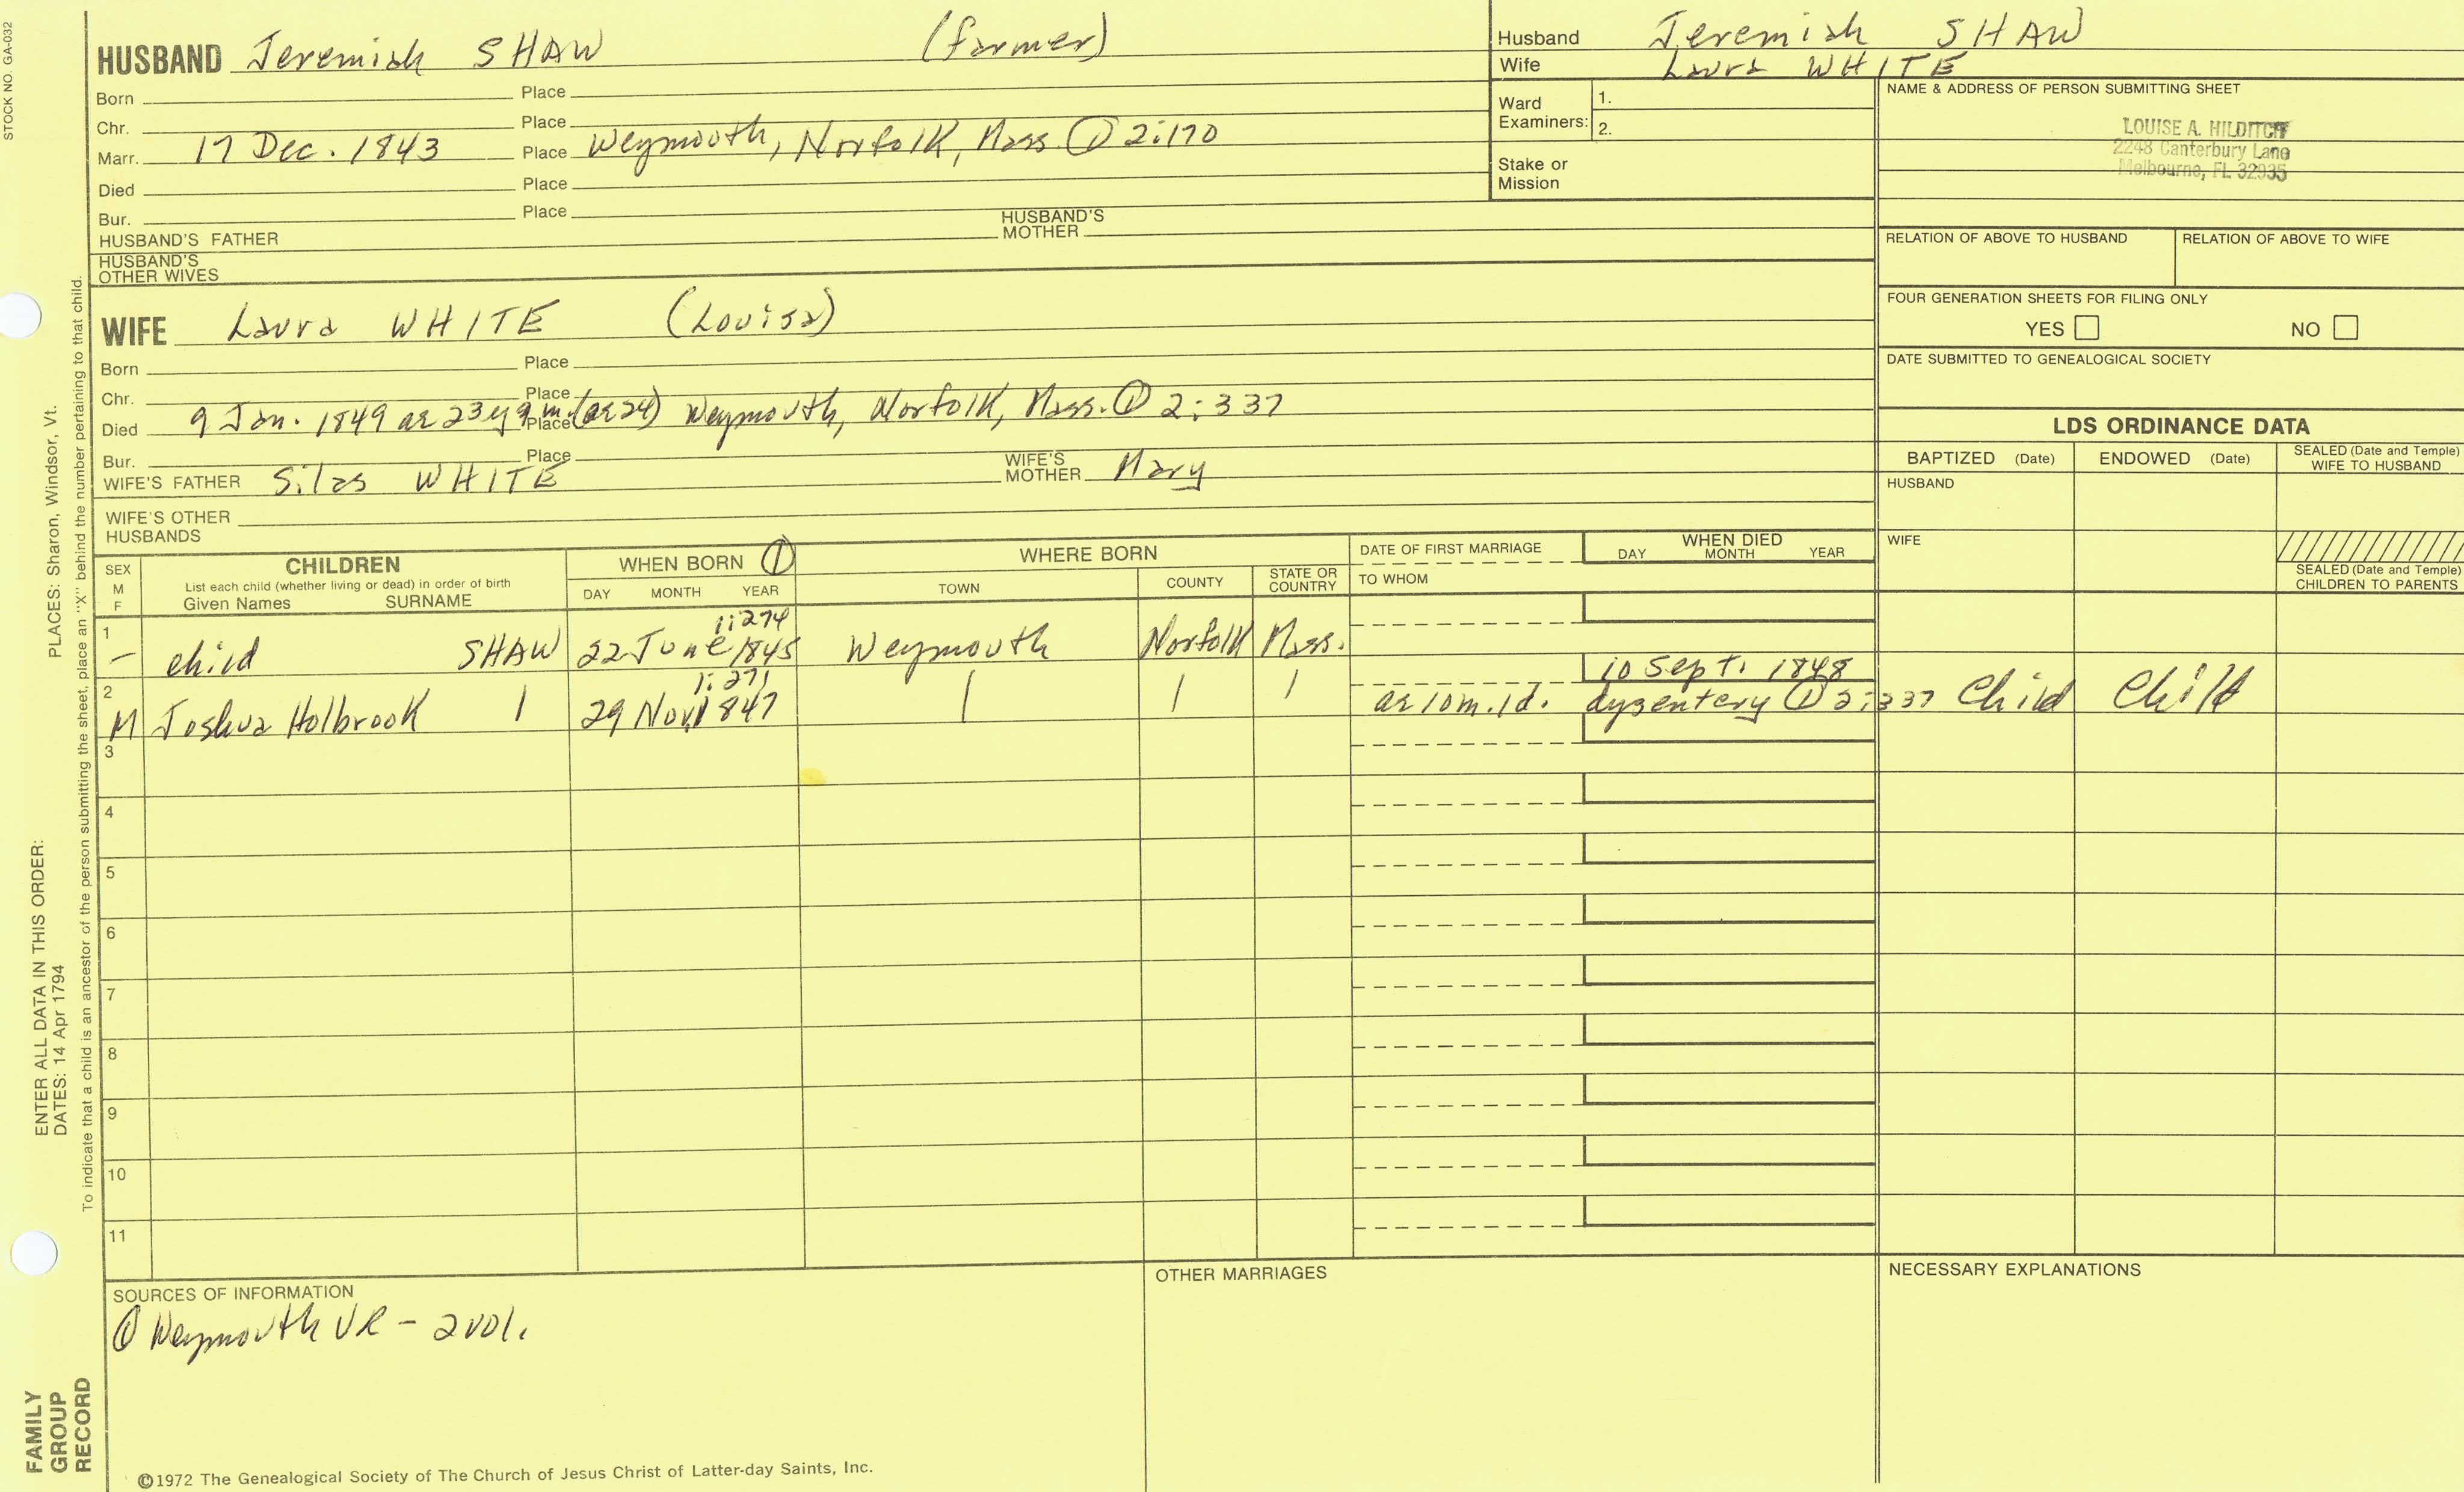 STOCK NO. GA-032
HUSBAND Jeremiah SHAW (farmer)
Born Place
Chr. Place
Marr. 17 Dec. 1843 Place Weymouth, Norfolk, Mass. ① 2:170
Died Place
Bur. Place
HUSBAND'S FATHER HUSBAND'S MOTHER
HUSBAND'S OTHER WIVES
WIFE Laura WHITE (Louisa)
Born Place
Chr. Place
Died 9 Jan. 1849 ae 23y 9m. (ae 24) Place Weymouth, Norfolk, Mass. ① 2:337
Bur. Place
WIFE'S FATHER Silas WHITE WIFE'S MOTHER Mary
WIFE'S OTHER HUSBANDS
Husband Jeremiah SHAW
Wife Laura WHITE
Ward Examiners: 1.
2.
Stake or Mission
NAME & ADDRESS OF PERSON SUBMITTING SHEET
LOUISE A. HILDITCH
2248 Canterbury Lane
Melbourne, FL 32935
RELATION OF ABOVE TO HUSBAND RELATION OF ABOVE TO WIFE
FOUR GENERATION SHEETS FOR FILING ONLY
YES NO
DATE SUBMITTED TO GENEALOGICAL SOCIETY
LDS ORDINANCE DATA
BAPTIZED (Date) ENDOWED (Date) SEALED (Date and Temple) WIFE TO HUSBAND
HUSBAND
WIFE
SEALED (Date and Temple) CHILDREN TO PARENTS
SEX M F
CHILDREN
List each child (whether living or dead) in order of birth
Given Names SURNAME
WHEN BORN ①
DAY MONTH YEAR
WHERE BORN
TOWN COUNTY STATE OR COUNTRY
DATE OF FIRST MARRIAGE
TO WHOM
WHEN DIED
DAY MONTH YEAR
1:274
1 – child SHAW 22 June 1845 Weymouth Norfolk Mass.
1:271 10 Sept. 1848
2 M Joshua Holbrook | 29 Nov. 1847 | | | ae 10m. 1d. dysentery ① 2:337 Child Child
3
4
5
6
7
8
9
10
11
SOURCES OF INFORMATION
① Weymouth VR – 2 vol.
OTHER MARRIAGES
NECESSARY EXPLANATIONS
©1972 The Genealogical Society of The Church of Jesus Christ of Latter-day Saints, Inc.
ENTER ALL DATA IN THIS ORDER:
DATES: 14 Apr 1794 PLACES: Sharon, Windsor, Vt.
To indicate that a child is an ancestor of the person submitting the sheet, place an "X" behind the number pertaining to that child.
FAMILY
GROUP
RECORD